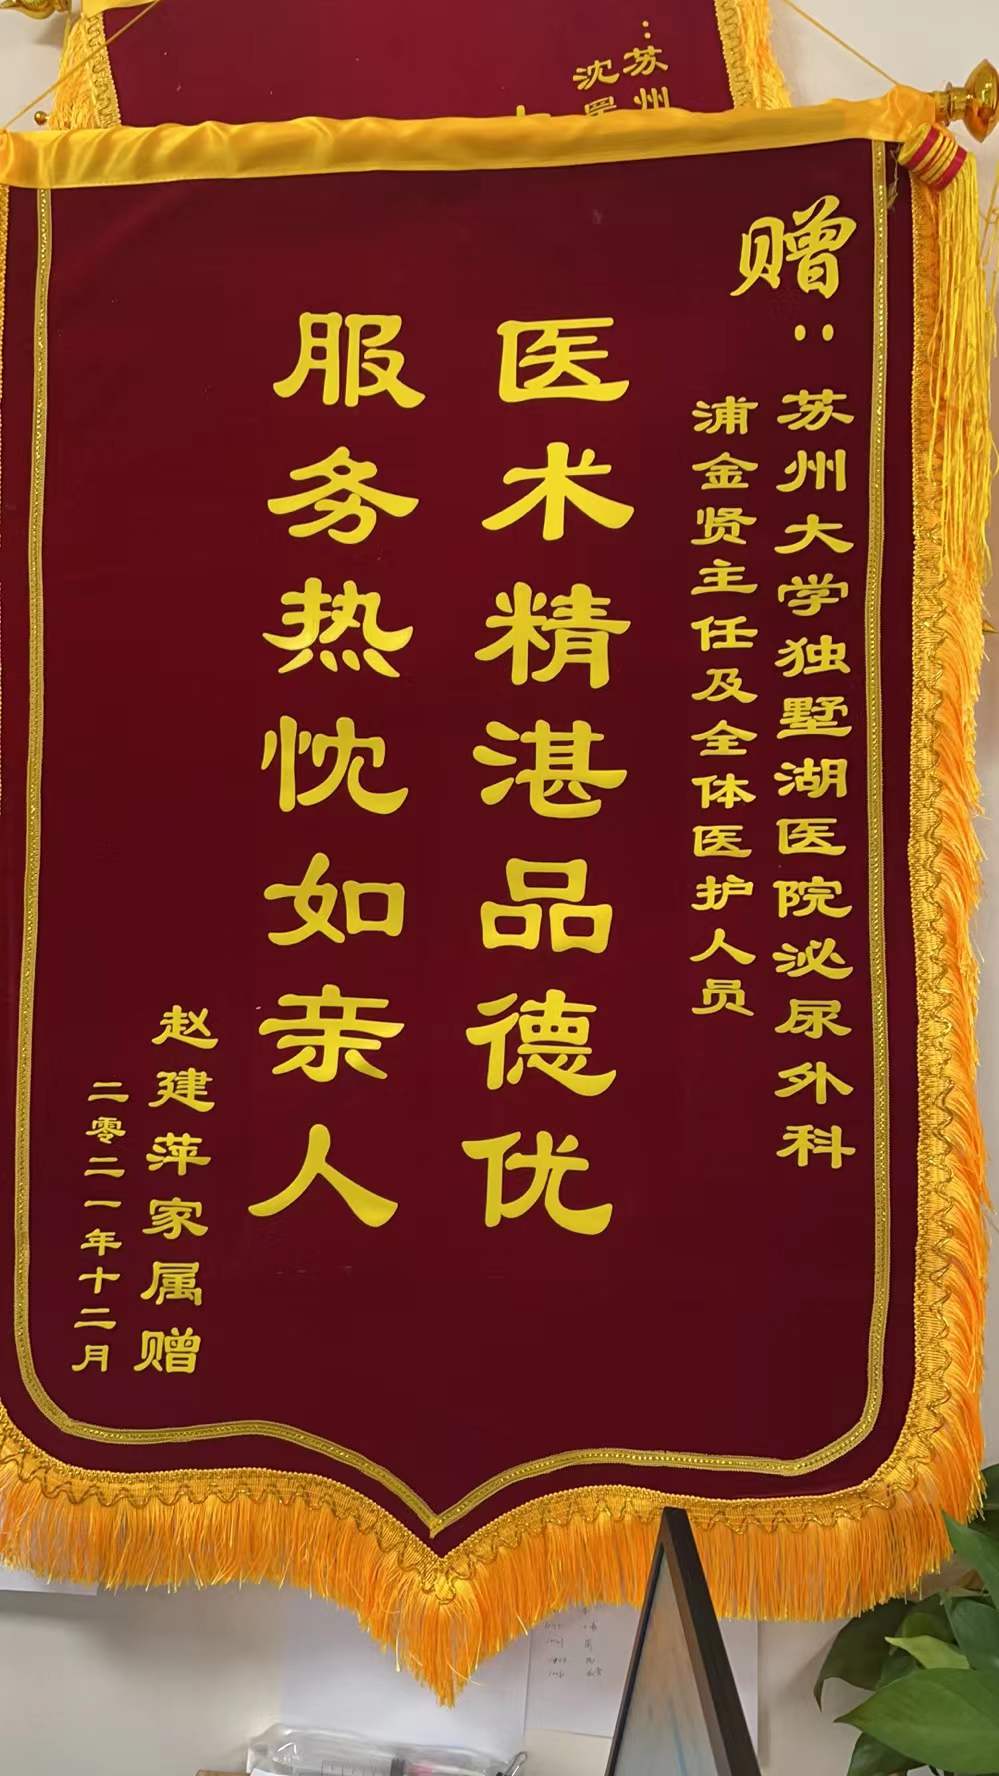 赠：苏州大学独墅湖医院泌尿外科
浦金贤主任及全体医护人员
医术精湛品德优
服务热忱如亲人
赵建萍家属赠
二零二一年十二月
：苏州
沈